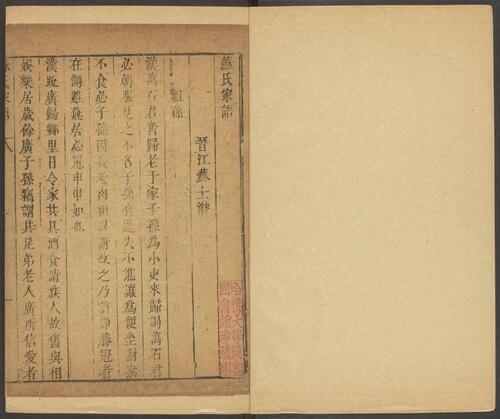 蘇氏家語
晉江蘇士潛
祖孫
漢萬石君奮歸老于家子孫為小吏來歸謁萬石君
必朝服見之不名子孫有過失不譙讓為便坐對案
不食必子孫因長老肉袒固謝改之乃許即勝冠者
在側雖燕居必冠申申如也
漢疏廣歸鄉里日令家共具酒食請族人故舊與相
娛樂居歲餘廣子孫竊謂其昆弟老人廣所信愛者
哈佛大學漢和
圖書館珍藏印